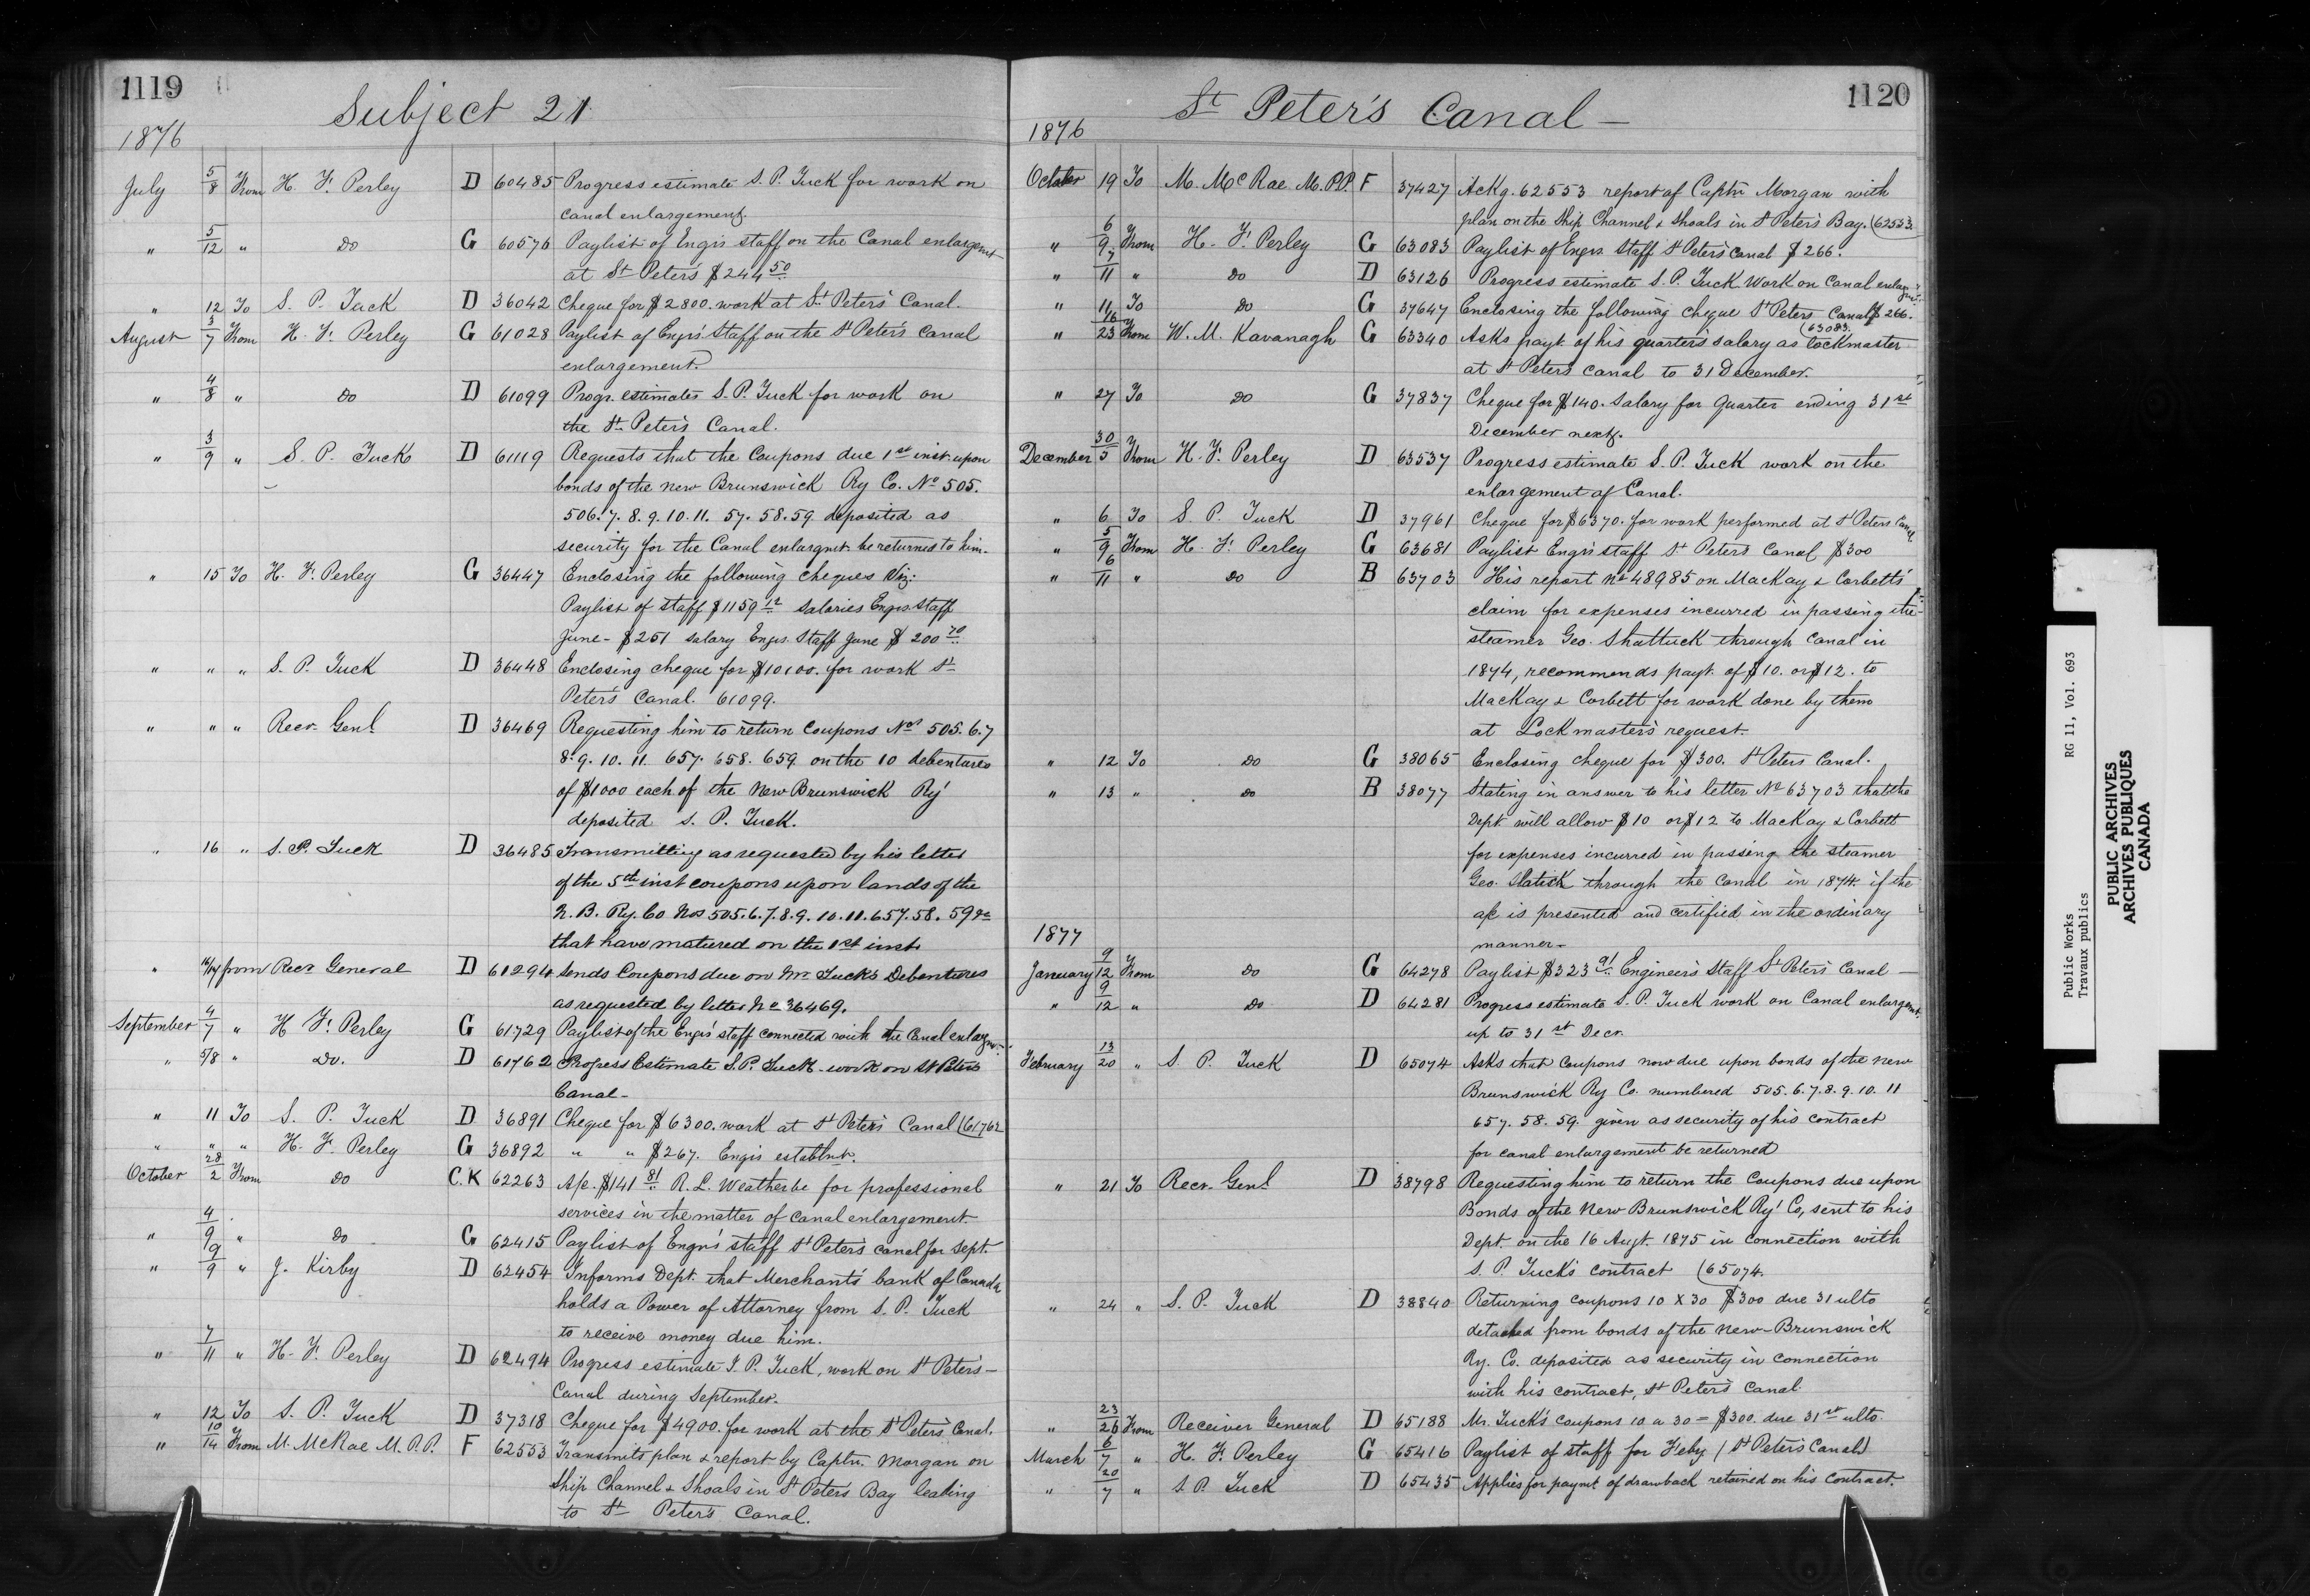 1119
Subject 21
1876
July 5/8 From H. F. Perley D 60485 Progress estimate S. P. Tuck for work on
canal enlargement.
" 5/12 " Do G 60576 Paylist of Engrs staff on the Canal enlargemt
at St Peters $244 50
" 12 To S. P. Tuck D 36042 Cheque for $2800. work at St Peters' Canal.
August 3/7 From H. F. Perley G 61028 Paylist of Engrs. Staff on the St Peter's canal
enlargement.
" 4/8 " Do D 61099 Progr. estimates S. P. Tuck for work on
the St Peter's Canal.
" 3/9 " S. P. Tuck D 61119 Requests that the Coupons due 1st inst. upon
bonds of the New Brunswick Ry Co. No 505.
506. 7. 8. 9. 10. 11. 57. 58. 59 deposited as
security for the Canal enlargmt. be returned to him.
" 15 To H. F. Perley G 36447 Enclosing the following cheques Viz:
Paylist of staff $1159 12 Salaries Engrs. Staff
June - $251 salary Engrs. Staff June $200 70
" " " S. P. Tuck D 36448 Enclosing cheque for $10100. for work St
Peter's Canal. 61099.
" " " Recr. Genl. D 36469 Requesting him to return Coupons Nos 505. 6. 7
8. 9. 10. 11. 657. 658. 659 on the 10 debentures
of $1000 each of the New Brunswick Ry
deposited S. P. Tuck.
" 16 " S. P. Tuck D 36485 Transmitting as requested by his letter
of the 5th inst coupons upon lands of the
N. B. Ry. Co Nos 505. 6. 7. 8. 9. 10. 11. 657. 58. 59
that have matured on the 1st inst.
" 16/17 from Recr General D 61294 Sends Coupons due on Mr Tuck's Debentures
as requested by letter No 36469.
September 4/7 " H F. Perley G 61729 Paylist of the Engrs' staff connected with the Canal enlargmt.
" 5/8 " Do. D 61762 Progress Estimate S. P. Tuck - work on St Peters
Canal -
" 11 To S. P. Tuck D 36891 Cheque for $6300. work at St Peter's Canal (61762
" " " H. F. Perley G 36892 " " $267. Engrs establmt.
October 28/2 From Do C. K 62263 A/c. $141 81 R. L. Weatherbe for professional
services in the matter of canal enlargement.
" 4/9 " Do G 62415 Paylist of Engrs' staff St Peter's canal for Sept.
" 9/9 " J. Kirby D 62454 Informs Dept. that Merchants' bank of Canada
holds a Power of Attorney from S. P. Tuck
to receive money due him.
" 7/11 " H. F. Perley D 62494 Progress estimate S. P. Tuck, work on St Peter's -
Canal during September.
" 12 To S. P. Tuck D 37318 Cheque for $4900. for work at the St Peter's Canal.
" 10/14 From M. McRae M. P. P. F 62553 Transmits plan & report by Captn. Morgan on
Ship Channel & Shoals in St Peter's Bay leading
to St Peter's Canal.
1120
St Peter's Canal -
1876
October 19 To M. McRae M. P.P. F 37427 Ackg. 62553 report of Captn Morgan with
plan on the Ship Channel & Shoals in St Peter's Bay. (62553.
" 6/9 From H. F. Perley G 63083 Paylist of Engrs. Staff St Peter's Canal $266.
" 7/11 " Do D 63126 Progress estimate S. P. Tuck Work on Canal enlargmt.
" 11 To Do G 37647 Enclosing the following cheque St Peters Canal $266.
(63083.
" 16/23 From W. M. Kavanagh G 63340 Asks payt. of his quarter's salary as lockmaster
at St Peters canal to 31 December.
" 27 To Do G 37837 Cheque for $140. Salary for Quarter ending 31st
December next.
December 30/5 From H. F. Perley D 63537 Progress estimate S. P. Tuck work on the
enlargement of Canal.
" 6 To S. P. Tuck D 37961 Cheque for $6370. for work performed at St Peters Canal
" 5/9 From H. F. Perley G 63681 Paylist Engrs staff St Peter's Canal $300
" 6/11 " Do B 63703 His report No 48985 on MacKay & Corbett's
claim for expenses incurred in passing the
steamer Geo. Shattuck through Canal in
1874, recommends payt. of $10. or $12. to
MacKay & Corbett for work done by them
at Lockmaster's request.
" 12 To Do G 38065 Enclosing cheque for $300. St Peters Canal.
" 13 " Do B 38077 Stating in answer to his letter No 63703 that the
Dept will allow $10 or $12 to MacKay & Corbett
for expenses incurred in passing the steamer
Geo. Slatick through the Canal in 1874. if the
a/c is presented and certified in the ordinary
manner -
1877
January 9/12 From Do G 64278 Paylist $323 91 Engineer's Staff St Peter's Canal -
" 9/12 " Do D 64281 Progress estimate S. P. Tuck work on Canal enlargmt.
up to 31st Decr.
February 13/20 " S. P. Tuck D 65074 Asks that Coupons now due upon bonds of the New
Brunswick Ry Co. numbered 505. 6. 7. 8. 9. 10. 11
657. 58. 59. given as security of his contract
for canal enlargement be returned
" 21 To Recr. Genl. D 38798 Requesting him to return the Coupons due upon
Bonds of the New Brunswick Ry Co, sent to his
Dept. on the 16 Augt. 1875 in connection with
S. P. Tuck's contract (65074.
" 24 " S. P. Tuck D 38840 Returning coupons 10 X 30 $300 due 31 ulto
detached from bonds of the New-Brunswick
Ry. Co. deposited as security in connection
with his contract, St Peter's Canal
" 23/26 From Receiver General D 65188 Mr. Tuck's coupons 10 a 30 = $300. due 31st ulto.
March 6/7 " H. F. Perley G 65416 Paylist of staff for Feby. (St Peter's Canal)
" 20/7 " S. P. Tuck D 65435 Applies for paymt. of drawback retained on his contract.
Public Works RG 11, Vol. 693
Travaux publics
PUBLIC ARCHIVES
ARCHIVES PUBLIQUES
CANADA